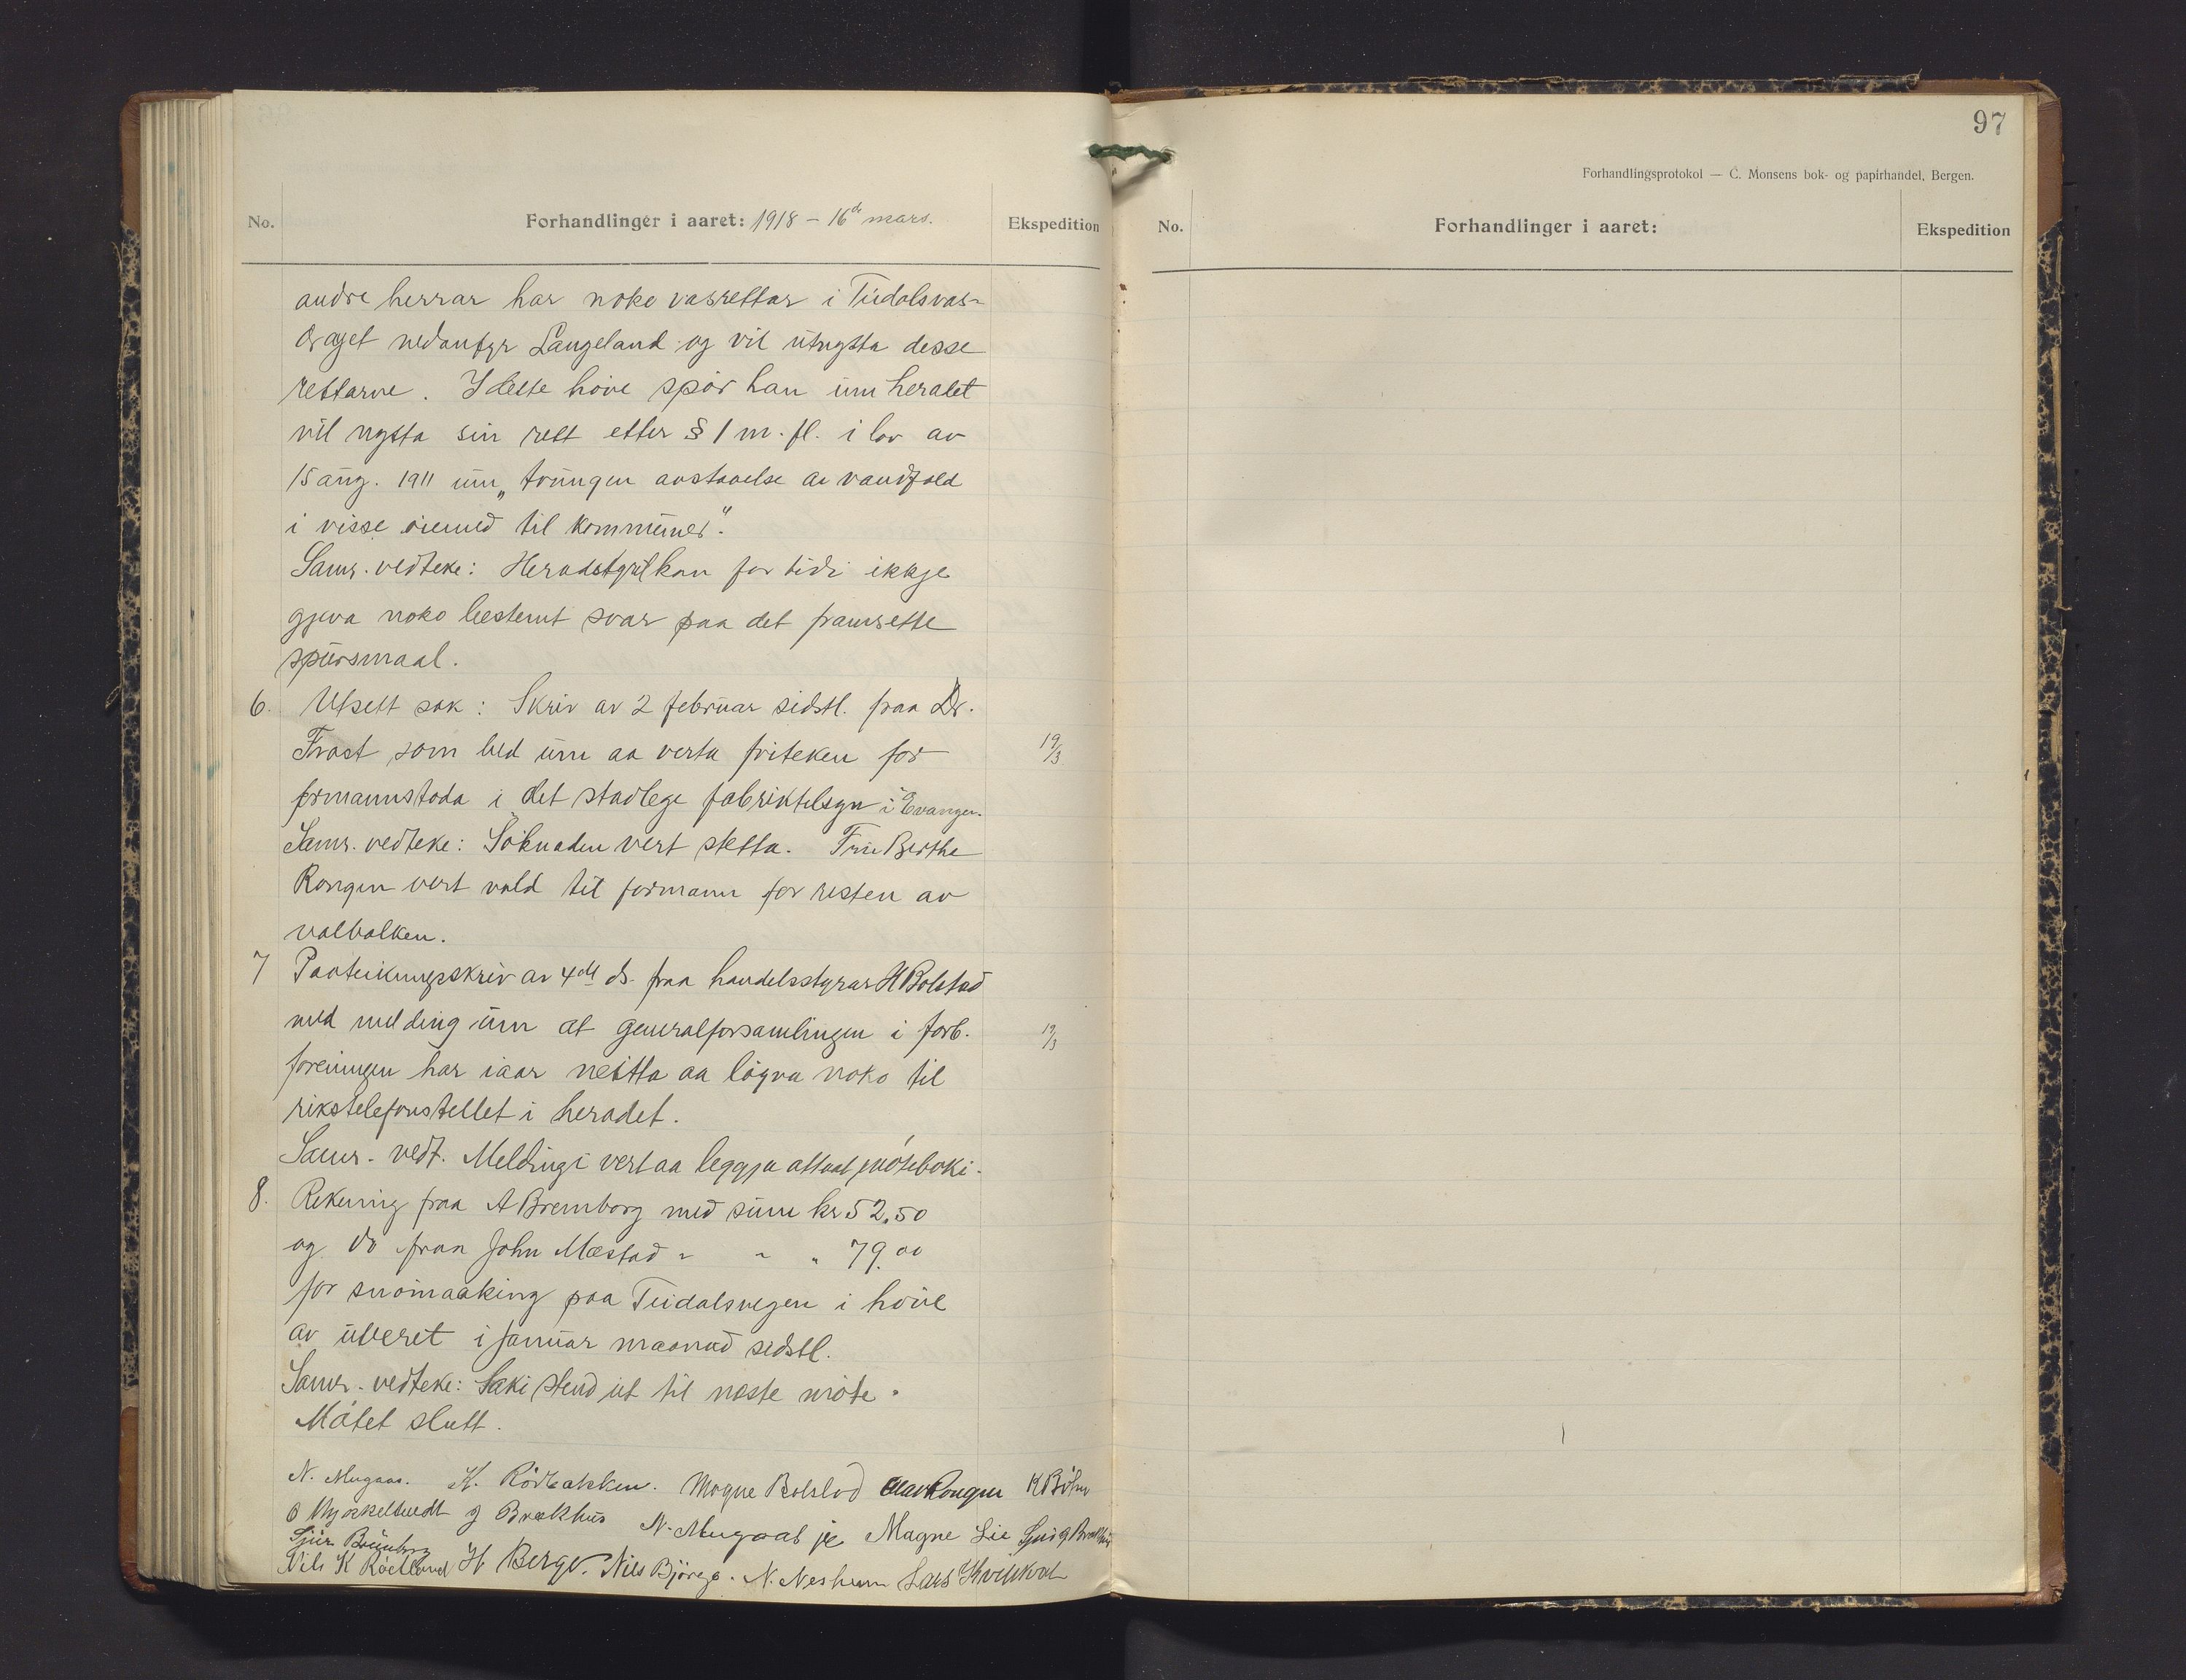 No.
Forhandlinger i aaret: 1918 – 16de mars.
Ekspedition
andre herrar har noko vasrettar i Teidalsvas-
draget nedanfyr Langeland og vil utnytta desse
rettarne. I dette høve spør han um heradet
vil nytta sin rett etter § 1 m. fl. i lov av
15 aug. 1911 um „tvungen avstaaelse av vandfald
i visse øiemed til kommuner".
Samr. vedteke: Heradstyret kan for tidi ikkje
gjeva noko bestemt svar paa det framsette
spursmaal.
6. Utsett sak: Skriv av 2 februar sidstl. fraa Dr.
Frost som bed um aa verta friteken for
formannstoda i det stadlege fabriktilsyn i Evanger.
19/3
Samr. vedteke: Søknaden vert stetta. Fru Berthe
Rongen vert vald til formann for resten av
valbolken.
7 Paateikningsskriv av 4de ds. fraa handelsstyrar H Bolstad
med melding um at generalforsamlingen i forb.
19/3
foreningen har iaar neitta aa løyva noko til
rikstelefonstellet i heradet.
Samr. vedt. Meldingi vert aa leggja attaat møteboki.
8. Rekning fraa A Bremborg med sum kr 52,50
og do fraa John Mæstad " " " 79.00
for snømaaking paa Teidalsvegen i høve
av uveret i januar maanad sidstl.
Samr. vedteke: Saki stend ut til næste møte.
Møtet slutt.
N. Mugaas. K. Rødbakken. Magne Bolstad Olav Rongen K Böhn
O Mjøkeltvedt G Brækhus N. Mugaas jr Magne Lie
Sjur Bremborg
Nils K Røetland H Berge. Nils Bjørge. N. Nesheim Lars Kvilekval
97
Forhandlingsprotokol — C. Monsens bok- og papirhandel, Bergen.
No.
Forhandlinger i aaret:
Ekspedition